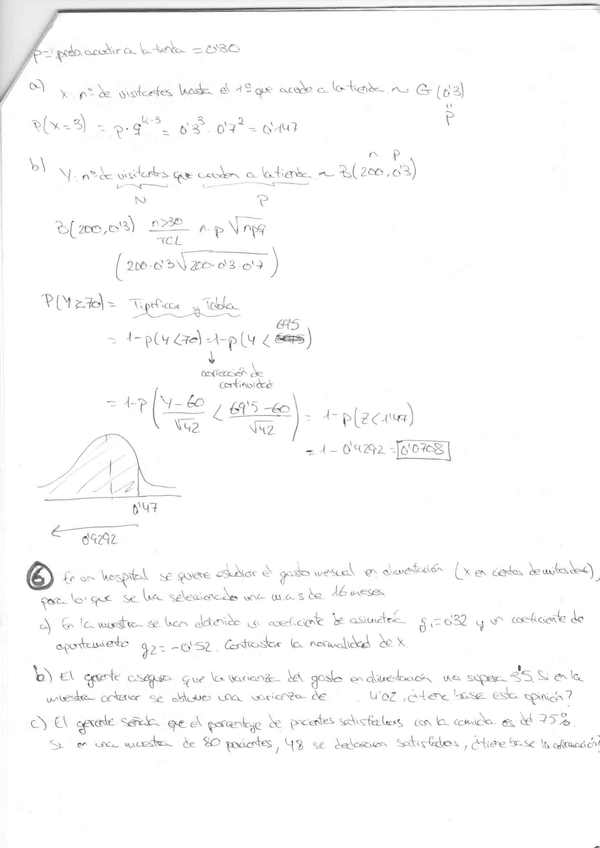 p = prob. acudir a la tienda = 0'30
a) X: nº de visitantes hasta el 1º que acude a la tienda ~ G(0'3)
"
p
P(x=3) = p·q^{k-3} = 0'3^3 · 0'7^2 = 0'147
n p
b) Y: nº de visitantes que acuden a la tienda ~ B(200, 0'3)
N P
B(200, 0'3) n>30 / TCL n·p √npq
(200·0'3 √200·0'3·0'7)
P(Y≥70) = Tipificar y Tabla
69'5
= 1-p(Y<70) = 1-p(Y <
corrección de
continuidad
= 1-P(Y-60/√42 < 69'5-60/√42) = 1-P(Z<1'47)
= 1-0'4292 = 0'0708
0'47
0'9292
6 En un hospital se quiere estudiar el gasto mensual en alimentación (X en cientos de miles de
para lo que se ha seleccionado una m.a.s de 16 meses
a) En la muestra se han obtenido un coeficiente de asimetría g1=0'32 y un coeficiente de
apuntamiento g2=-0'52. Contrastar la normalidad de X.
b) El gerente asegura que la varianza del gasto en alimentación no supera 3'5. Si en la
muestra anterior se obtuvo una varianza de 4'02, ¿tiene base esta opinión?
c) El gerente señala que el porcentaje de pacientes satisfechos con la comida es del 75%.
Si en una muestra de 80 pacientes, 48 se declararon satisfechos, ¿tiene base la afirmación?